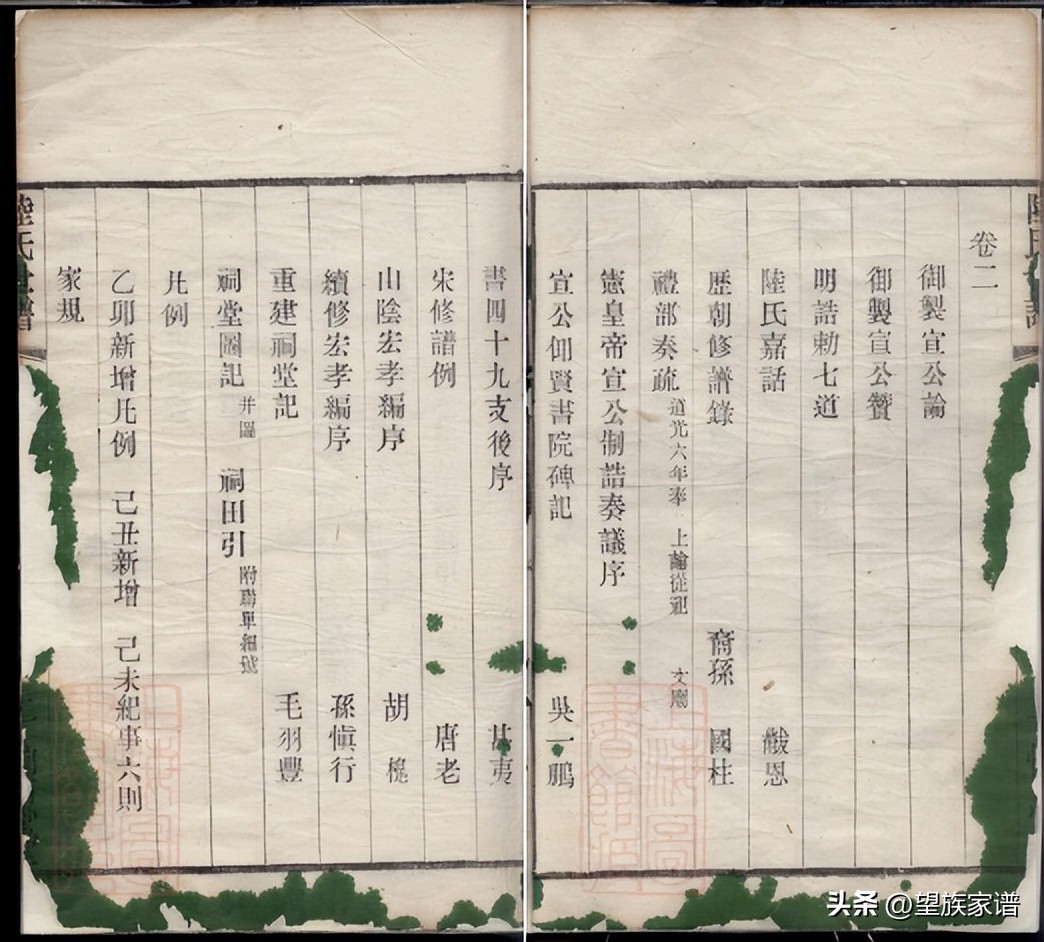 卷二
御製宣公論
御製宣公贊
明誥勅七道
陸氏嘉話 戩恩
歷朝修譜錄 裔孫 國柱
禮部奏疏 道光六年奉 上諭從祀 文廟
憲皇帝宣公制誥奏議序
宣公仰賢書院碑記 吳一鵬
書四十九支後序 夷
宋修譜例 唐老
山陰宏孝編序 胡槐
續修宏孝編序 孫愼行
重建祠堂記 毛羽豐
祠堂圖記 并圖 祠田引
凡例
乙卯新增凡例 己丑新增 己未紀事六則
家規
陸氏世譜
头条 @望族家谱